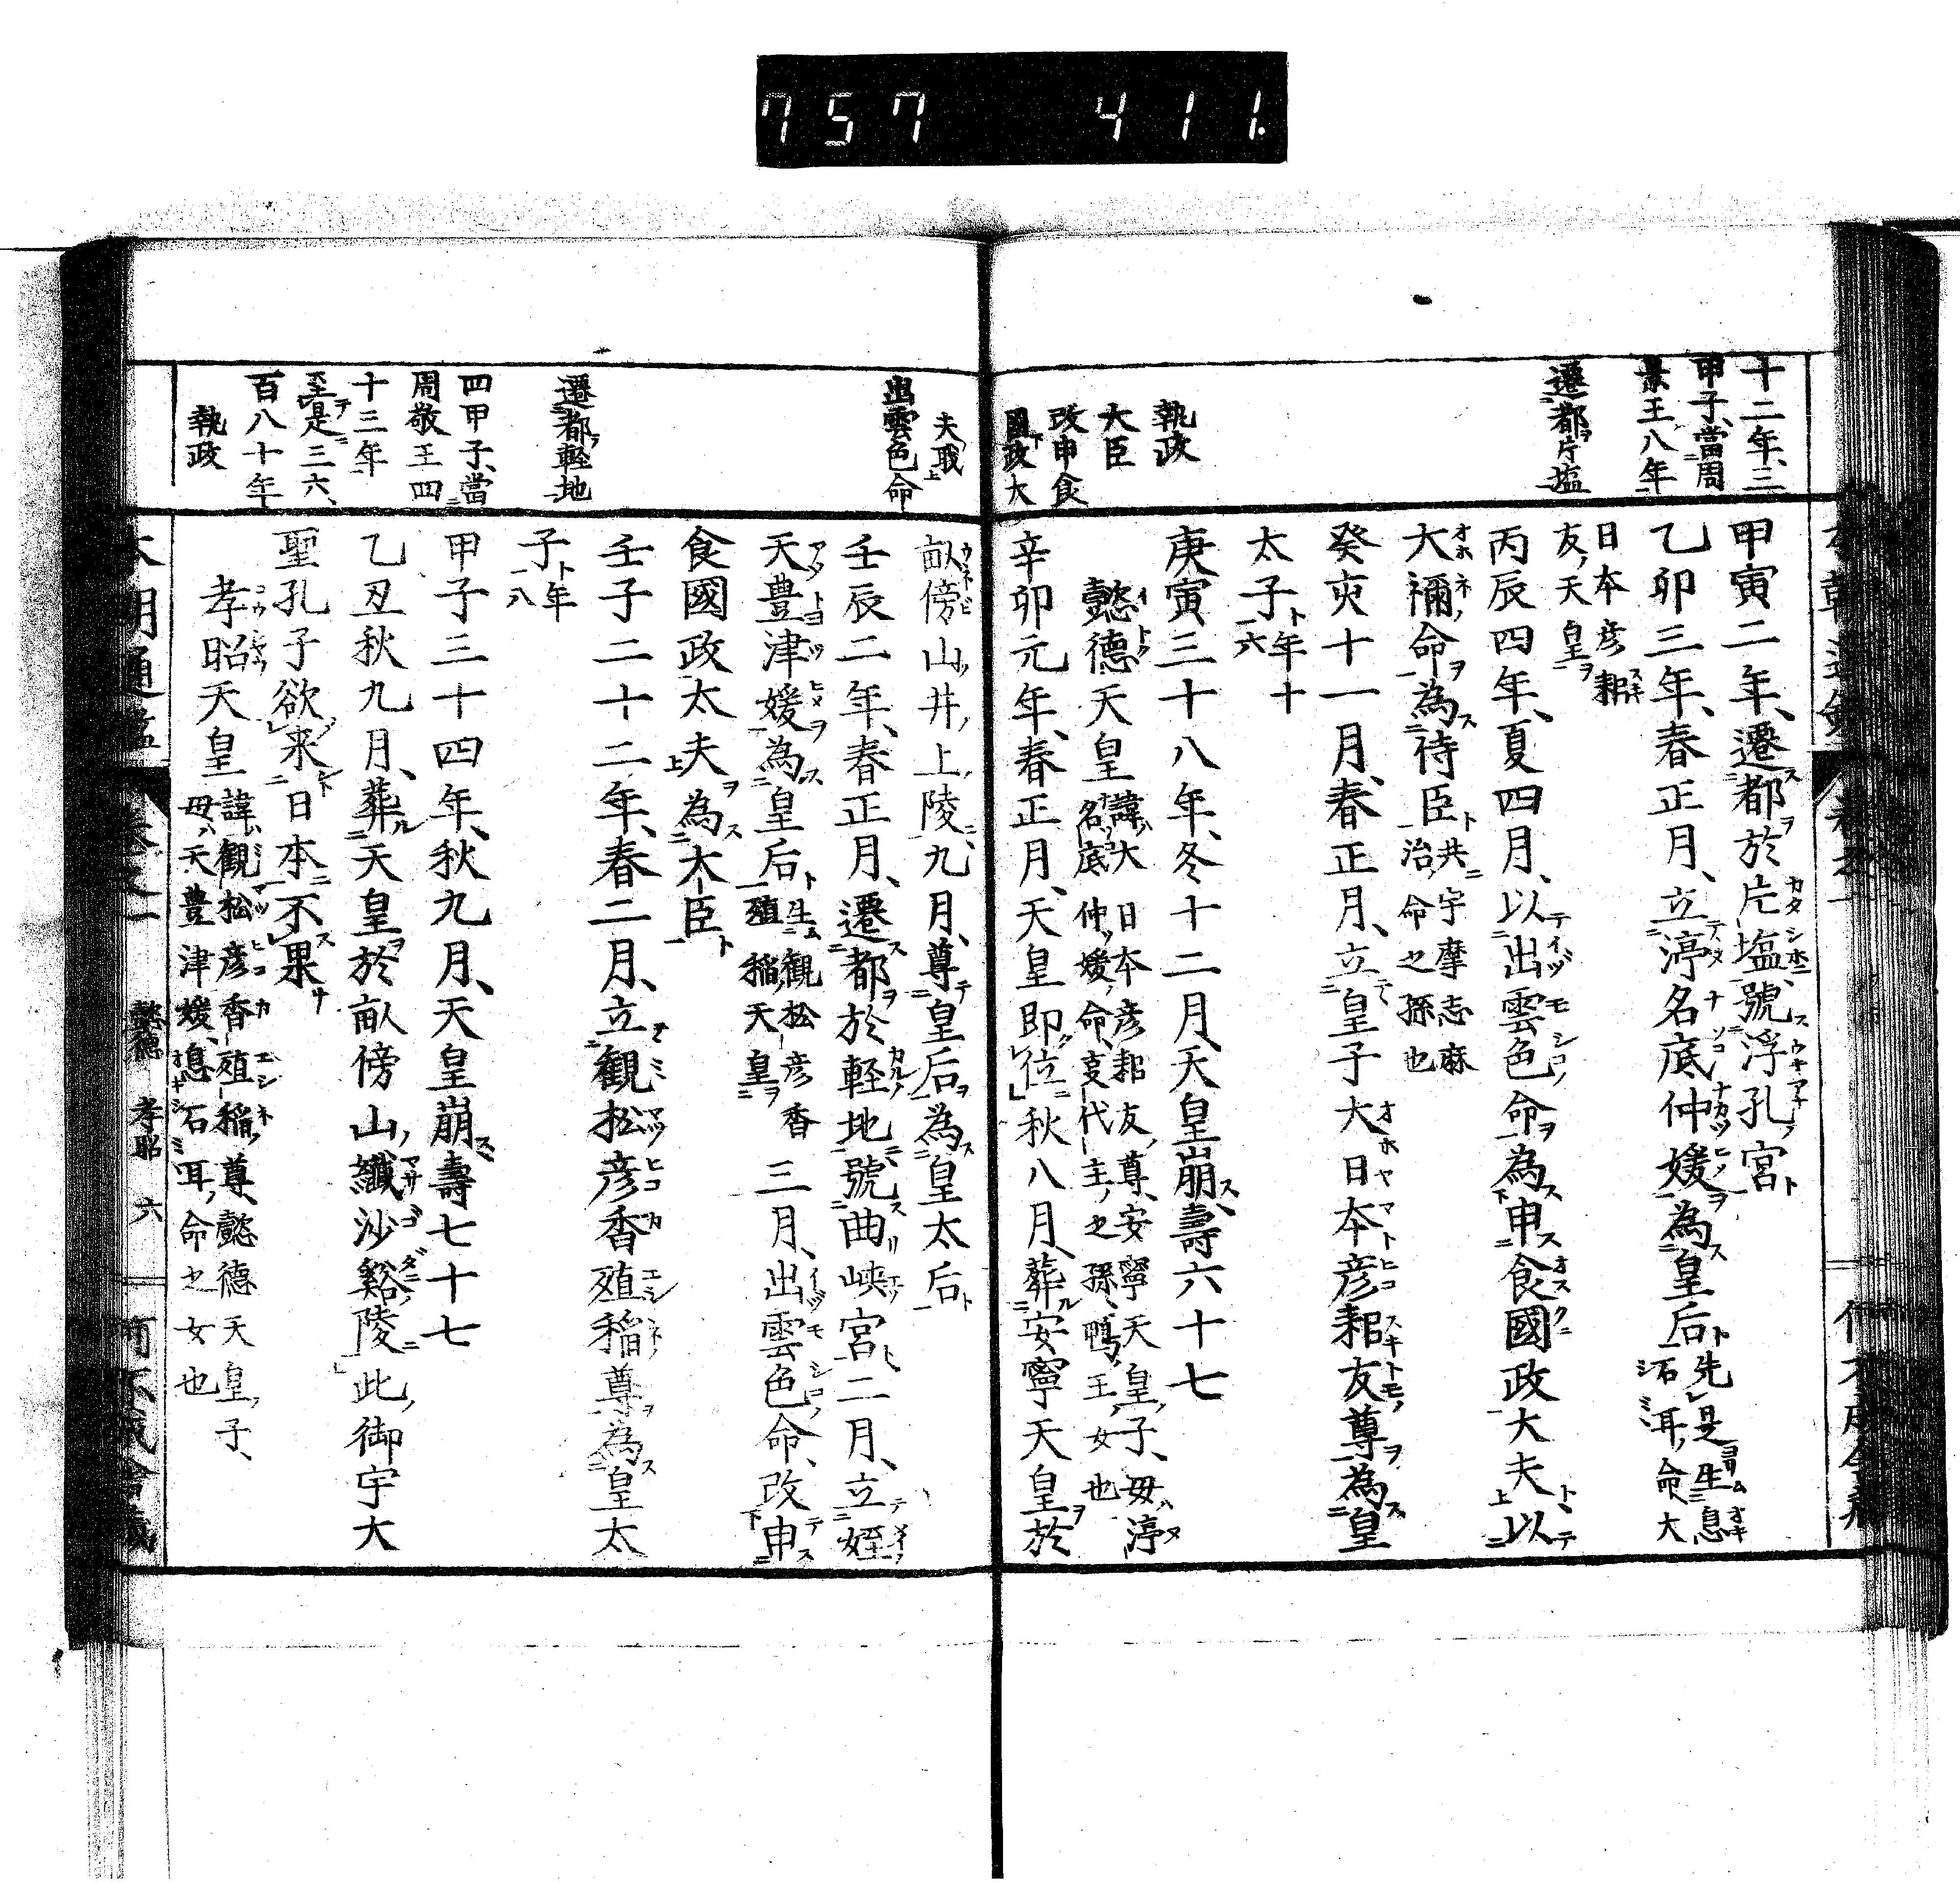 757 411.
十二年、三
甲子、當周
景王八年
遷都片塩
執政
大臣
改申食
國政大
甲寅二年、遷都於片塩、號浮孔宮
乙卯三年、春正月、立渟名底仲媛為皇后先是生息
石耳命大
日本彦耜
友天皇
丙辰四年、夏四月、以出雲色命為申食國政大夫以
大禰命為侍臣共宇摩志麻
治命之孫也
癸亥十一月、春正月、立皇子大日本彦耜友尊為皇
太子年十
六
庚寅三十八年、冬十二月、天皇崩、壽六十七
懿德天皇諱大日本彦耜友尊、安寧天皇子、母渟
名底仲媛命、事代主之孫、鴨王女也
辛卯元年、春正月、天皇即位秋八月、葬安寧天皇於
夫職
出雲色命
遷都軽地
四甲子、當
周敬王四
十三年
至是三六、
百八十年
執政
畝傍山井上陵、九月、尊皇后為皇太后
壬辰二年、春正月、遷都於軽地、號曲峡宮、二月、立
天豊津媛為皇后生觀松彦香
殖稲天皇三月、出雲色命、改申
食國政太夫為大臣
壬子二十二年、春二月、立觀松彦香殖稲尊為皇太
子年
十八
甲子三十四年、秋九月、天皇崩壽七十七
乙丑秋九月、葬天皇於畝傍山、纖沙谿陵此御宇大
聖孔子欲来日本不果
孝昭天皇諱觀松彦香殖稲尊、懿德天皇子、
母天豊津媛、息石耳命之女也
懿德　孝昭　六